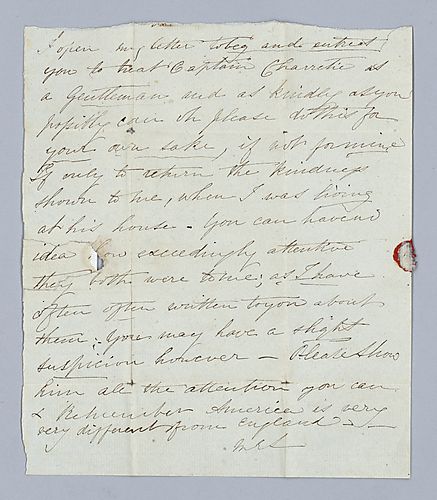 I open my letter to beg and entreat
you to treat Captain Charretie as
a Gentleman and as kindly as you
possibly can Oh please do this for
your own sake, if not for mine
If only to return the kindness
shown to me, when I was living
at his house - You can have no
idea how exceedingly attentive
they both were to me; as I have
often often written to you about
them; you may have a slight
suspicion however - Please Show
him all the attention you can
& Remember America is very
very different from England -